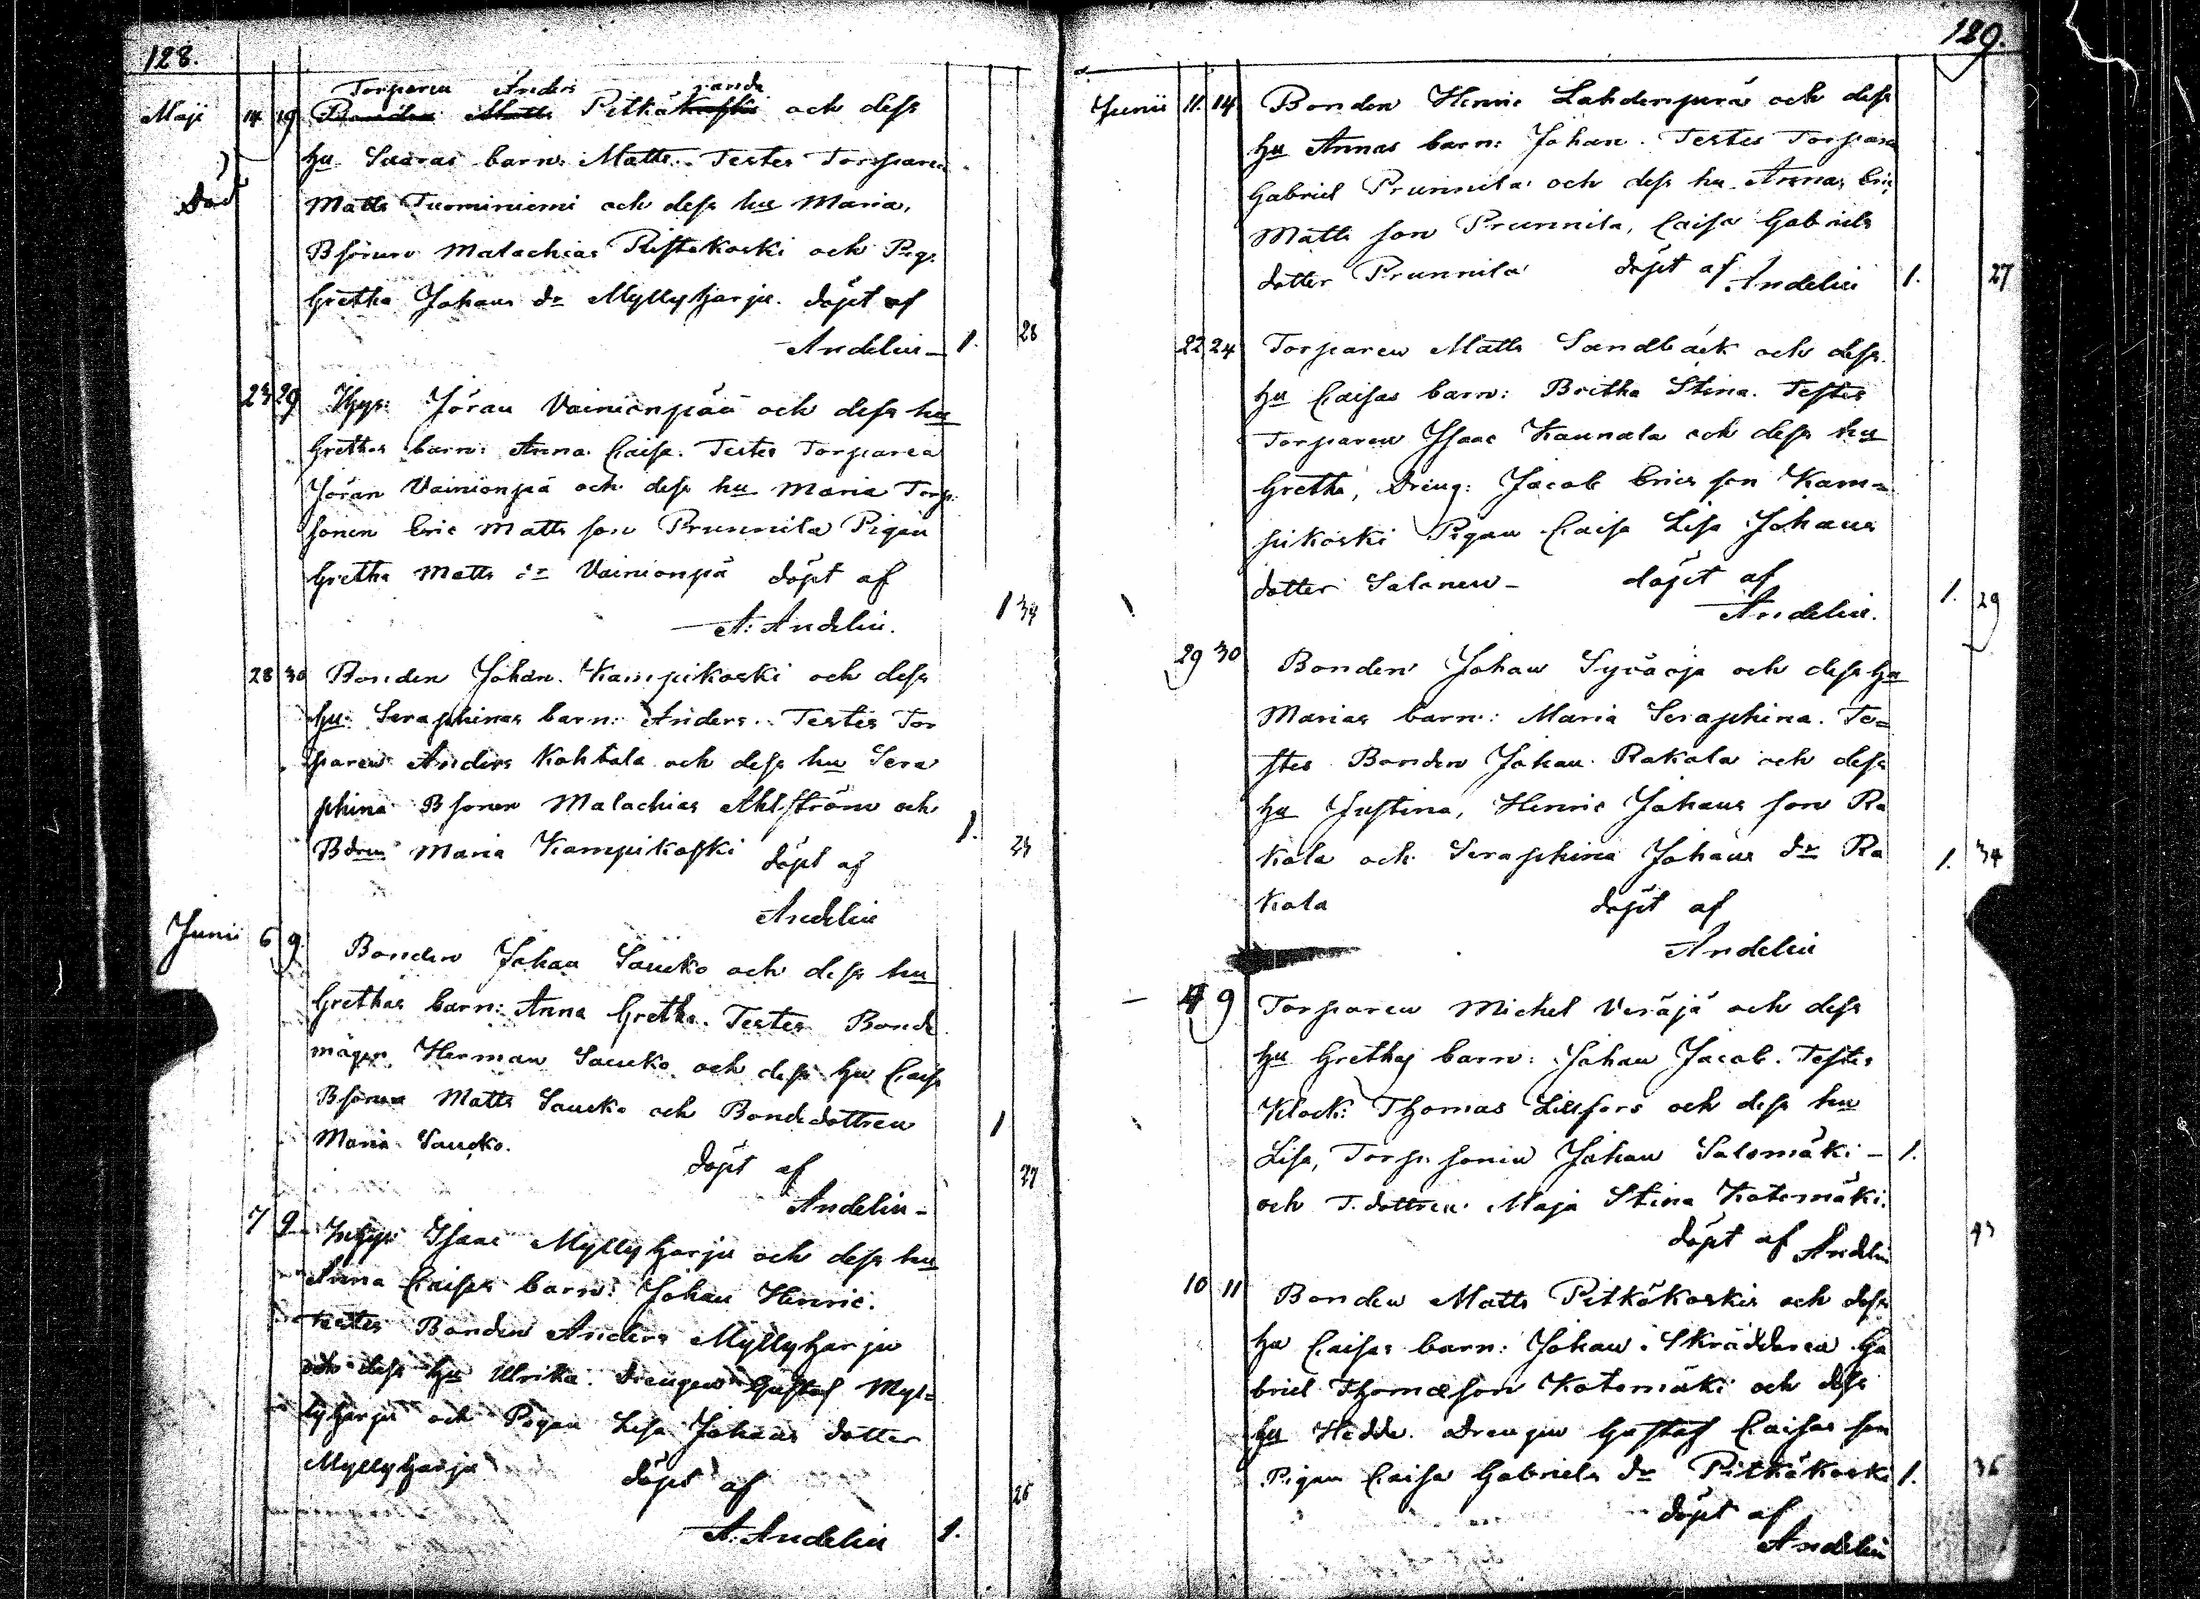 128.
Torparen Anders randa
Maji 14 19 Bonden Matts Pitkäkoski och dess
hu Saaras barn: Matts. Testes Torparen
Död
Matts Tuominiemi och dess hu Maria,
Bsonen Malachias Pitkäkoski och Pig:
Gretha Johans dr Myllyharju. döpt af
Andelin 1. 28
23 29 Jöran Vainionpää och dess hu
Grethas barn: Anna Caisa. Testes Torparen
Jöran Vainionpä och dess hu Maria Torp:
sonen Eric Matts son Prunnila Pigan
Gretha Matts dr Vainionpä döpt af
A: Andelin. 1 34
28 30 Bonden Johan Kampikoski och dess
hu: Seraphinas barn: Anders. Testes Tor
paren Anders Kohtala och dess hu Sera
phina Bsonen Malachias Ahlström och
Bdren Maria Kampikoski döpt af 1. 23
Andelin
Junii 6 9. Bonden Johan Saucko och dess hu
Grethas barn: Anna Gretha. Testes Bonde
mågen Herman Saucko och dess hu Caisa
Bsonen Matts Saucko och Bondedottren 1
Maria Saucko.
döpt af 27
Andelin
7 9 Isaac Myllyharju och dess hu
Anna Caisas barn: Johan Henric.
Testes Bonden Anders Myllyharju
och dess hu Ulrika. Drengen Gustaf Myl=
lyharju och Pigan Lisa Johans dotter
Myllyharju döpt af 26
A. Andelin 1.
129.
Junii 11. 14 Bonden Henric Lahdenperä och dess
hu Annas barn: Johan. Testes Torparen
Gabriel Prunnila och dess hu Anna, Eric
Matts son Prunnila, Caisa Gabriels
dotter Prunnila döpt af Andelin 1. 27
22 24 Torparen Matts Sandbäck och dess
hu Caisas barn: Britha Stina. Testes
Torparen Isaac Kaunala och dess hu
Gretha, Dreng: Jacob Erics son Kam=
pikoski Pigan Caisa Lisa Johans
dotter Salonen döpt af
Andelin. 1. 29
29 30 Bonden Johan Syväoja och dess hu
Marias barn: Maria Seraphina. Te=
stes Bonden Johan Rakala och dess
hu Justina, Henric Johans son Ra
kala och Seraphina Johans dr Ra 1. 34
kala döpt af
Andelin
4 9 Torparen Michel Veräjä och dess
hu Grethas barn: Johan Jacob. Testes
Klock: Thomas Lillfors och dess hu
Lisa, Torp: sonen Johan Salomäki 1.
och T. dottren Maja Stina Katomäki.
döpt af Andelin 43
10 11 Bonden Matts Pitkäkoskis och dess
hu Caisas barn: Johan. Skräddaren Ga
briel Thomæson Katomäki och dess
hu Hedda. Drengen Gustaf Caisas son
Pigan Caisa Gabriels dr Pitkäkoski 1. 36
döpt af
Andelin